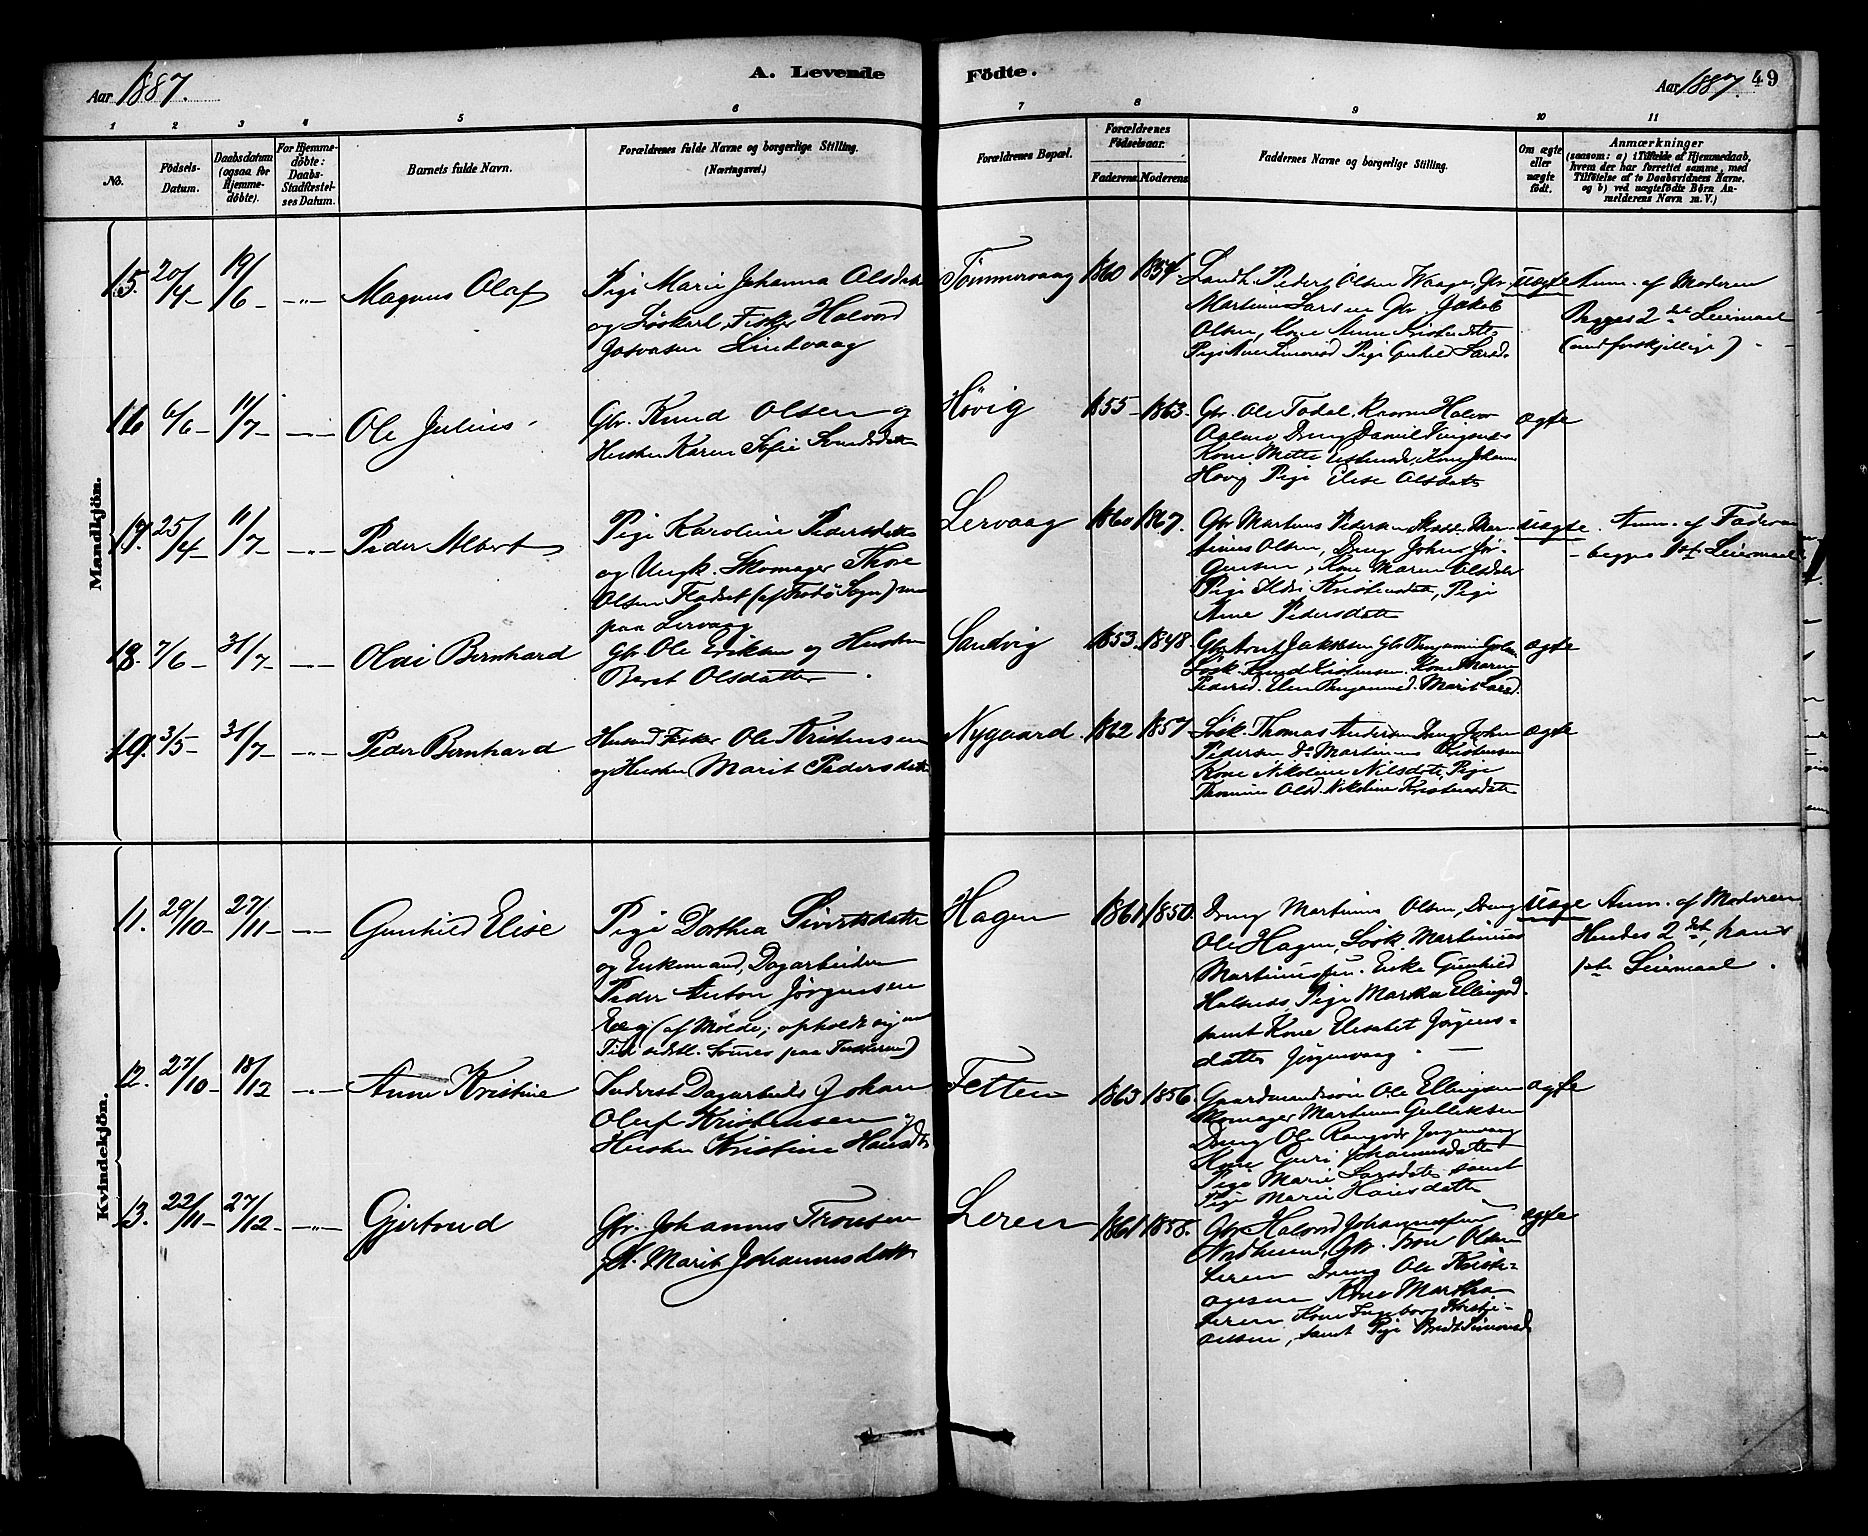 Aar 1887.
A. Levende
Födte.
Aar 1887.
49
1 2 3 4 5 6 7 8 9 10 11
No.
Födsels-
Datum.
Daabsdatum
(ogsaa for
Hjemme-
döbte).
For Hjemme-
döbte:
Daabs-
Stadfæstel-
ses Datum.
Barnets fulde Navn.
Forældrenes fulde Navne og borgerlige Stilling.
(Næringsvei.)
Forældrenes Bopæl.
Forældrenes
Födselsaar.
Faderens.
Moderens.
Faddernes Navne og borgerlige Stilling.
Om ægte
eller
uægte
födt.
Anmærkninger
(saasom: a) i Tilfælde af Hjemmedaab,
hvem der har forrettet samme, med
Tilföielse af to Daabsvidners Navne.
og b) ved uægtefödte Börn An-
melderens Navn m. V.)
Mandkjön.
15. 20/4 19/6 -"- Magnus Olaf
Pige Marie Johanna Olsdatter
og Löskarl, Fisker Halvord
Lindvaag
Tömmervaag 1860 1854.
Peder Olsen Waagen, Gbr.
Martinus Larsen Gbr. Jakob
Olsen, Kone Anne
Pige Pige Larsd.
uægte
Anm. af Moderen
Begges 2det Leiermaal
(med forskjellige)
16 6/6 11/7 -"- Ole Julius
Gbr. Knud Olsen og
Hustru Karen Sofie Knudsdatter
Hövig 1855 1863.
Gbr. Ole Todal.
Dreng Daniel
Kone Mette Kone Johanna
Hövig Pige Elise Olsdatter
ægte
17. 25/4 11/7 -"- Peder Albert
Pige Karoline Pedersdatter
og Ungk. Skomager Thore
Olsen Fladset (af Fredö Sogn) nu
paa Lervaag
Lervaag 1860 1867.
Gbr Martinus Pedersen Mar-
tinus Olsen, Dreng John Jör-
gensen, Kone Maren Olsdatter
Pige Kristensdatter, Pige
Ane Pedersdatter
uægte
Anm. af Faderen
- begges 1ste Leiermaal
18. 7/6 31/7 -"- Oldi Bernhard
Gbr. Ole Eriksen og Hustru
Beret Olsdatter.
Sandvig 1853. 1848.
Gbr Jakobsen Gbr Benjamin
Lösk. Knud Kristensen. Kone Maren
Pedersd. Elen Marit Larsd.
ægte
19. 3/5 31/7 -"- Peder Bernhard
Husmd Fisker Ole Kristensen
og Hustru Marit Pedersdatter
Nygaard 1862 1857.
Lösk. Thomas Andersen Dreng John
Pedersen Do Martinus Kristensen
Kone Nikoline Nilsdatter, Pige
Thomine Olsd. Nikoline Kristensdatter
ægte
Kvindekjön.
11. 29/10 27/11 -"- Gunhild Elise
Pige Dorthea Sivertsdatter
og Enkemand, Dagarbeider
Peder Anton Jörgensen
Eeg (af Molde; opholdt sig en
Tid sidstl. paa Tusteren)
Hagen 1861 1850.
Dreng Martinus Olsen, Dreng
Ole Hagen, Lösk. Martinus
Martinussen. Enke Gunhild
Pige Martha Ellingsd.
samt Kone Elisabet Jörgens-
datter Jörgenvaag.
uægte
Anm. af Moderen
Hendes 2det, hans
1ste Leiermaal.
12. 27/10 18/12 -"- Anne Kristine
Inderst Dagarbeider Johan
Oluf Kristensen og
Hustru Kristine Hansdtr
Tetten 1863 1856.
Gaardmandssön Ole Ellingsen
Skomager Martinus Gulliksen
Dreng Ole Jörgenvaag
Kone Guri Johannesdatter
Pige Marie Larsdatter samt
Pige Marie Hansdatter
ægte
13. 22/11 27/12 -"- Gjertrud
Gbr. Johannes Tronsen
H. Marit Johannesdatter
Leren 1861 1858.
Gbr Halvord Johannessen
Gbr. Tron Olsen
Leren Dreng Ole Kristi-
ansen Kone Martha
Leren Kone Ingeborg Kristi-
ansen, samt Pige Beret Simonsd.
ægte